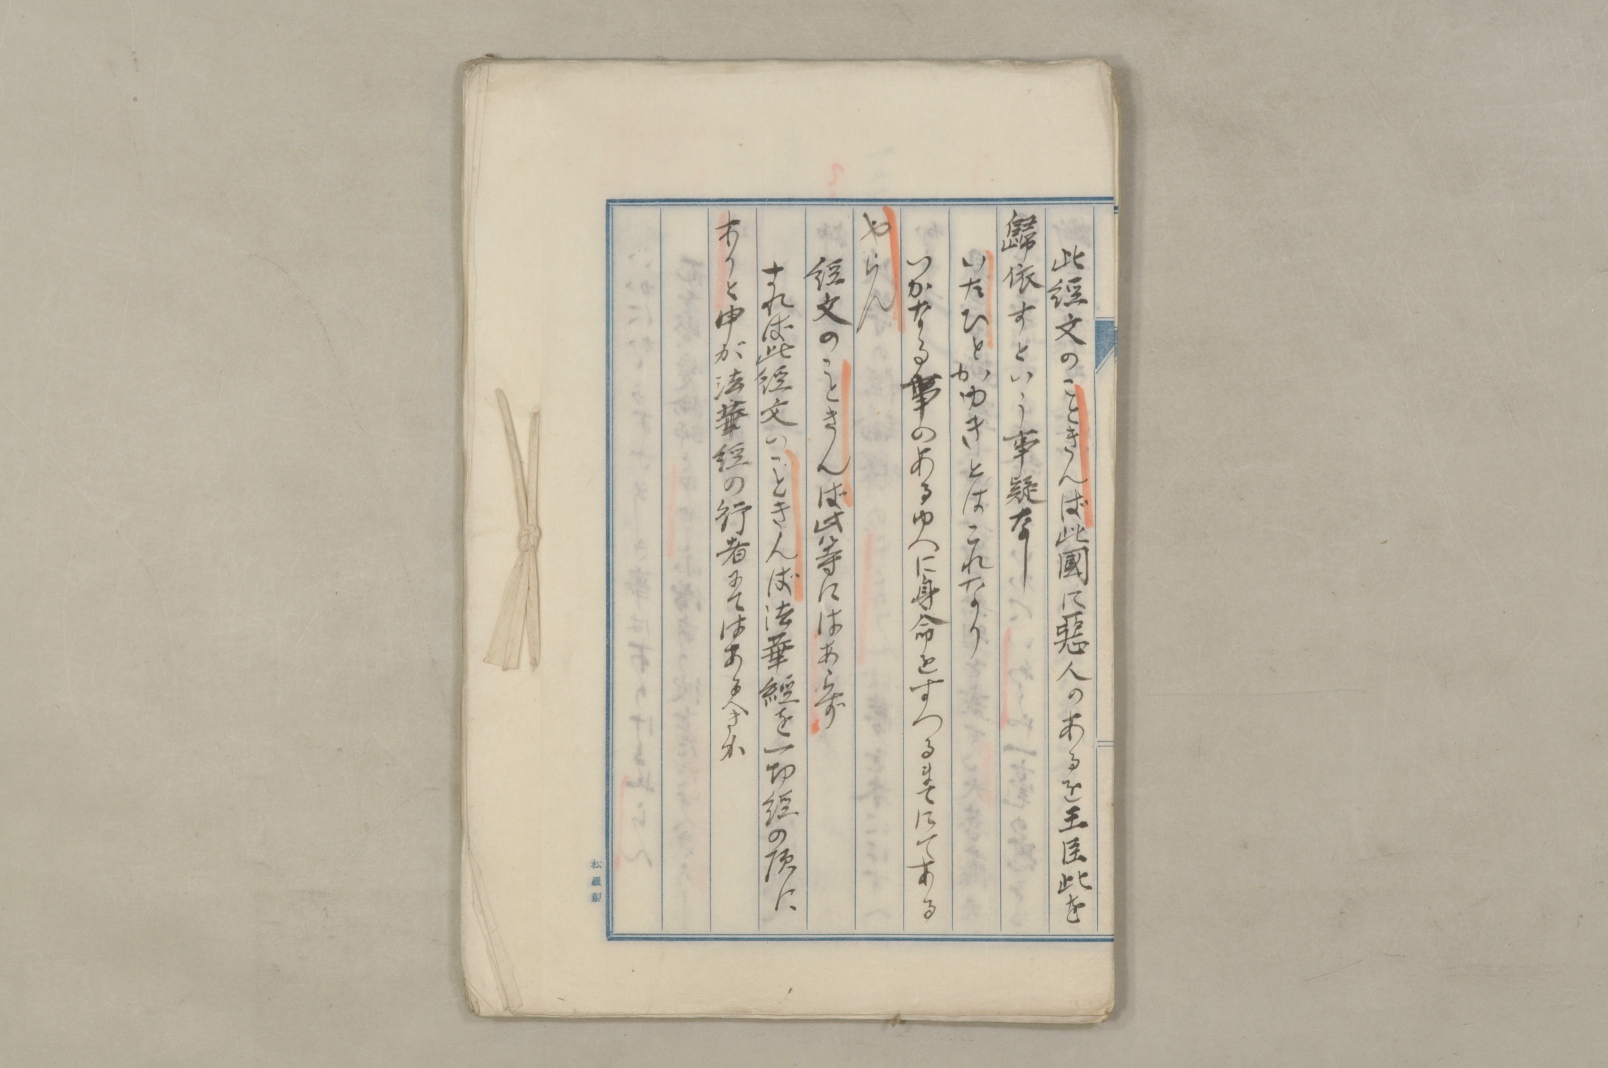 此經文のことくんば此國に惡人のあるを王臣此を
歸依すといふ事疑なし
いたひとかゆきとはこれなり
いかなる事のあるゆへに身命をすつるまでにてある
やらん
經文のことくんば此等にはあらず
されば此經文のことくんば法華經を一切經の頂に
ありと申が法華經の行者にてはあるべきか
松巖製